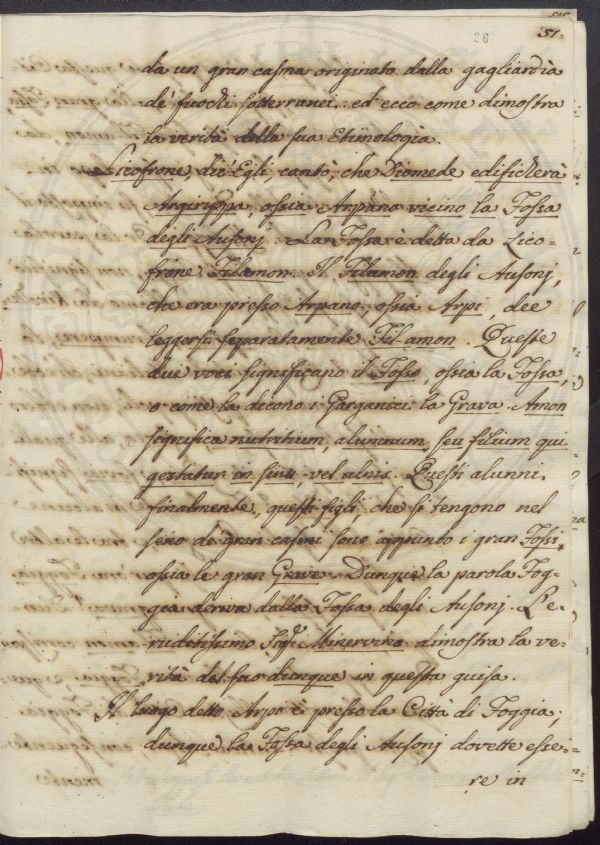 51.
26
da un gran casma originato dalla gagliardia
de' fuochi sotterranei: ed ecco come dimostra
la verità della sua Etimologia.
Licofrone, dic'Egli, cantò, che Diomede edificherà
Argirippa, ossia Arpano vicino la Fossa
degli Ausonj. La Fossa è detta da Lico-
frone Filamon. Il Filamon degli Ausonj,
che era presso Arpano, ossia Arpi, dee
leggersi separatamente Fil-amon. Queste
due voci significano il Fosso, ossia la Fossa,
o come la dicono i Garganici la Grava. Amon
significa nutritium, alumnum, seu filium qui
gestatur in sinu, vel ulnis. Questi alunni
finalmente, questi figli, che si tengono nel
seno de' gran casmi sono appunto i gran Fossi,
ossia le gran Grave. Dunque la parola Fog-
gia deriva dalla Fossa degli Ausonj. L'e-
ruditissimo Sig.r Minervino dimostra la ve-
rità del suo dunque in questa guisa.
Il luogo detto Arpi è presso la Città di Foggia;
dunque la Fossa degli Ausonj dovette esse-
re in